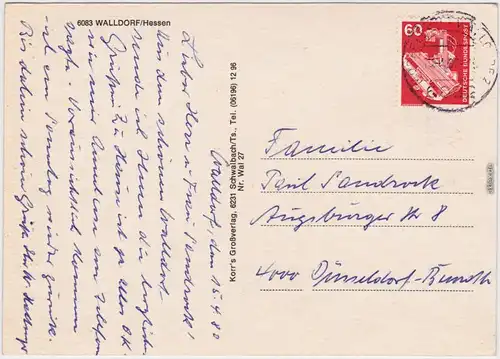 6083 WALLDORF/Hessen
Walldorf, den 15.4.80
Lieber Herr u. Frau Sandrock!
Aus dem schönen Walldorf
sende ich Ihnen die herzlich.
Grüße. Zu Hause ist ja alles OK.
wie mir Andrea am Telefon
sagte. Voraussichtlich kommen
wir am Sonntag wieder zurück.
Bis dahin schöne Grüße
Korr's Großverlag, 6231 Schwalbach/Ts., Tel. (06196) 12 96
Nr. Wal 27
60
DEUTSCHE BUNDESPOST
Familie
Paul Sandrock
Augsburger Str 8
4000 Düsseldorf-Benrath